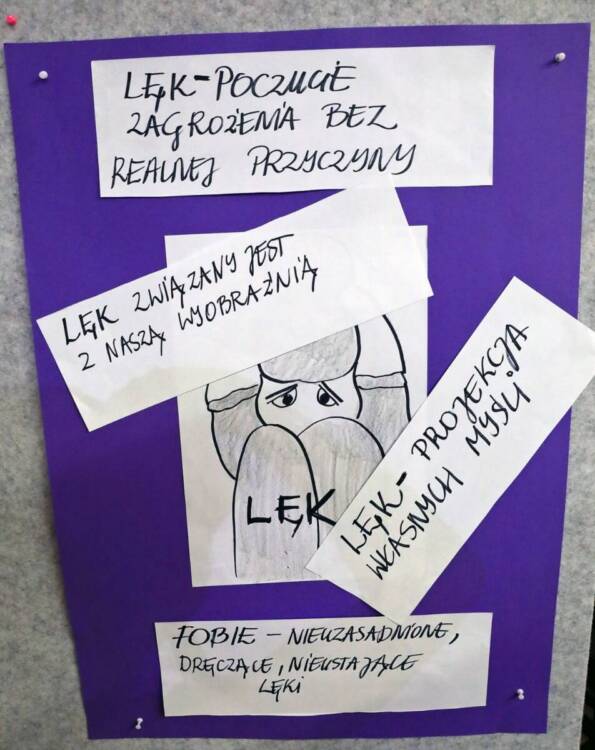 LĘK-POCZUCIE
ZAGROŻENIA BEZ
REALNEJ PRZYCZYNY
LĘK ZWIĄZANY JEST
Z NASZĄ WYOBRAŹNIĄ
LĘK- PROJEKCJA
WŁASNYCH MYŚLI
LĘK
FOBIE - NIEUZASADNIONE,
DRĘCZĄCE, NIEUSTAJĄCE
LĘKI